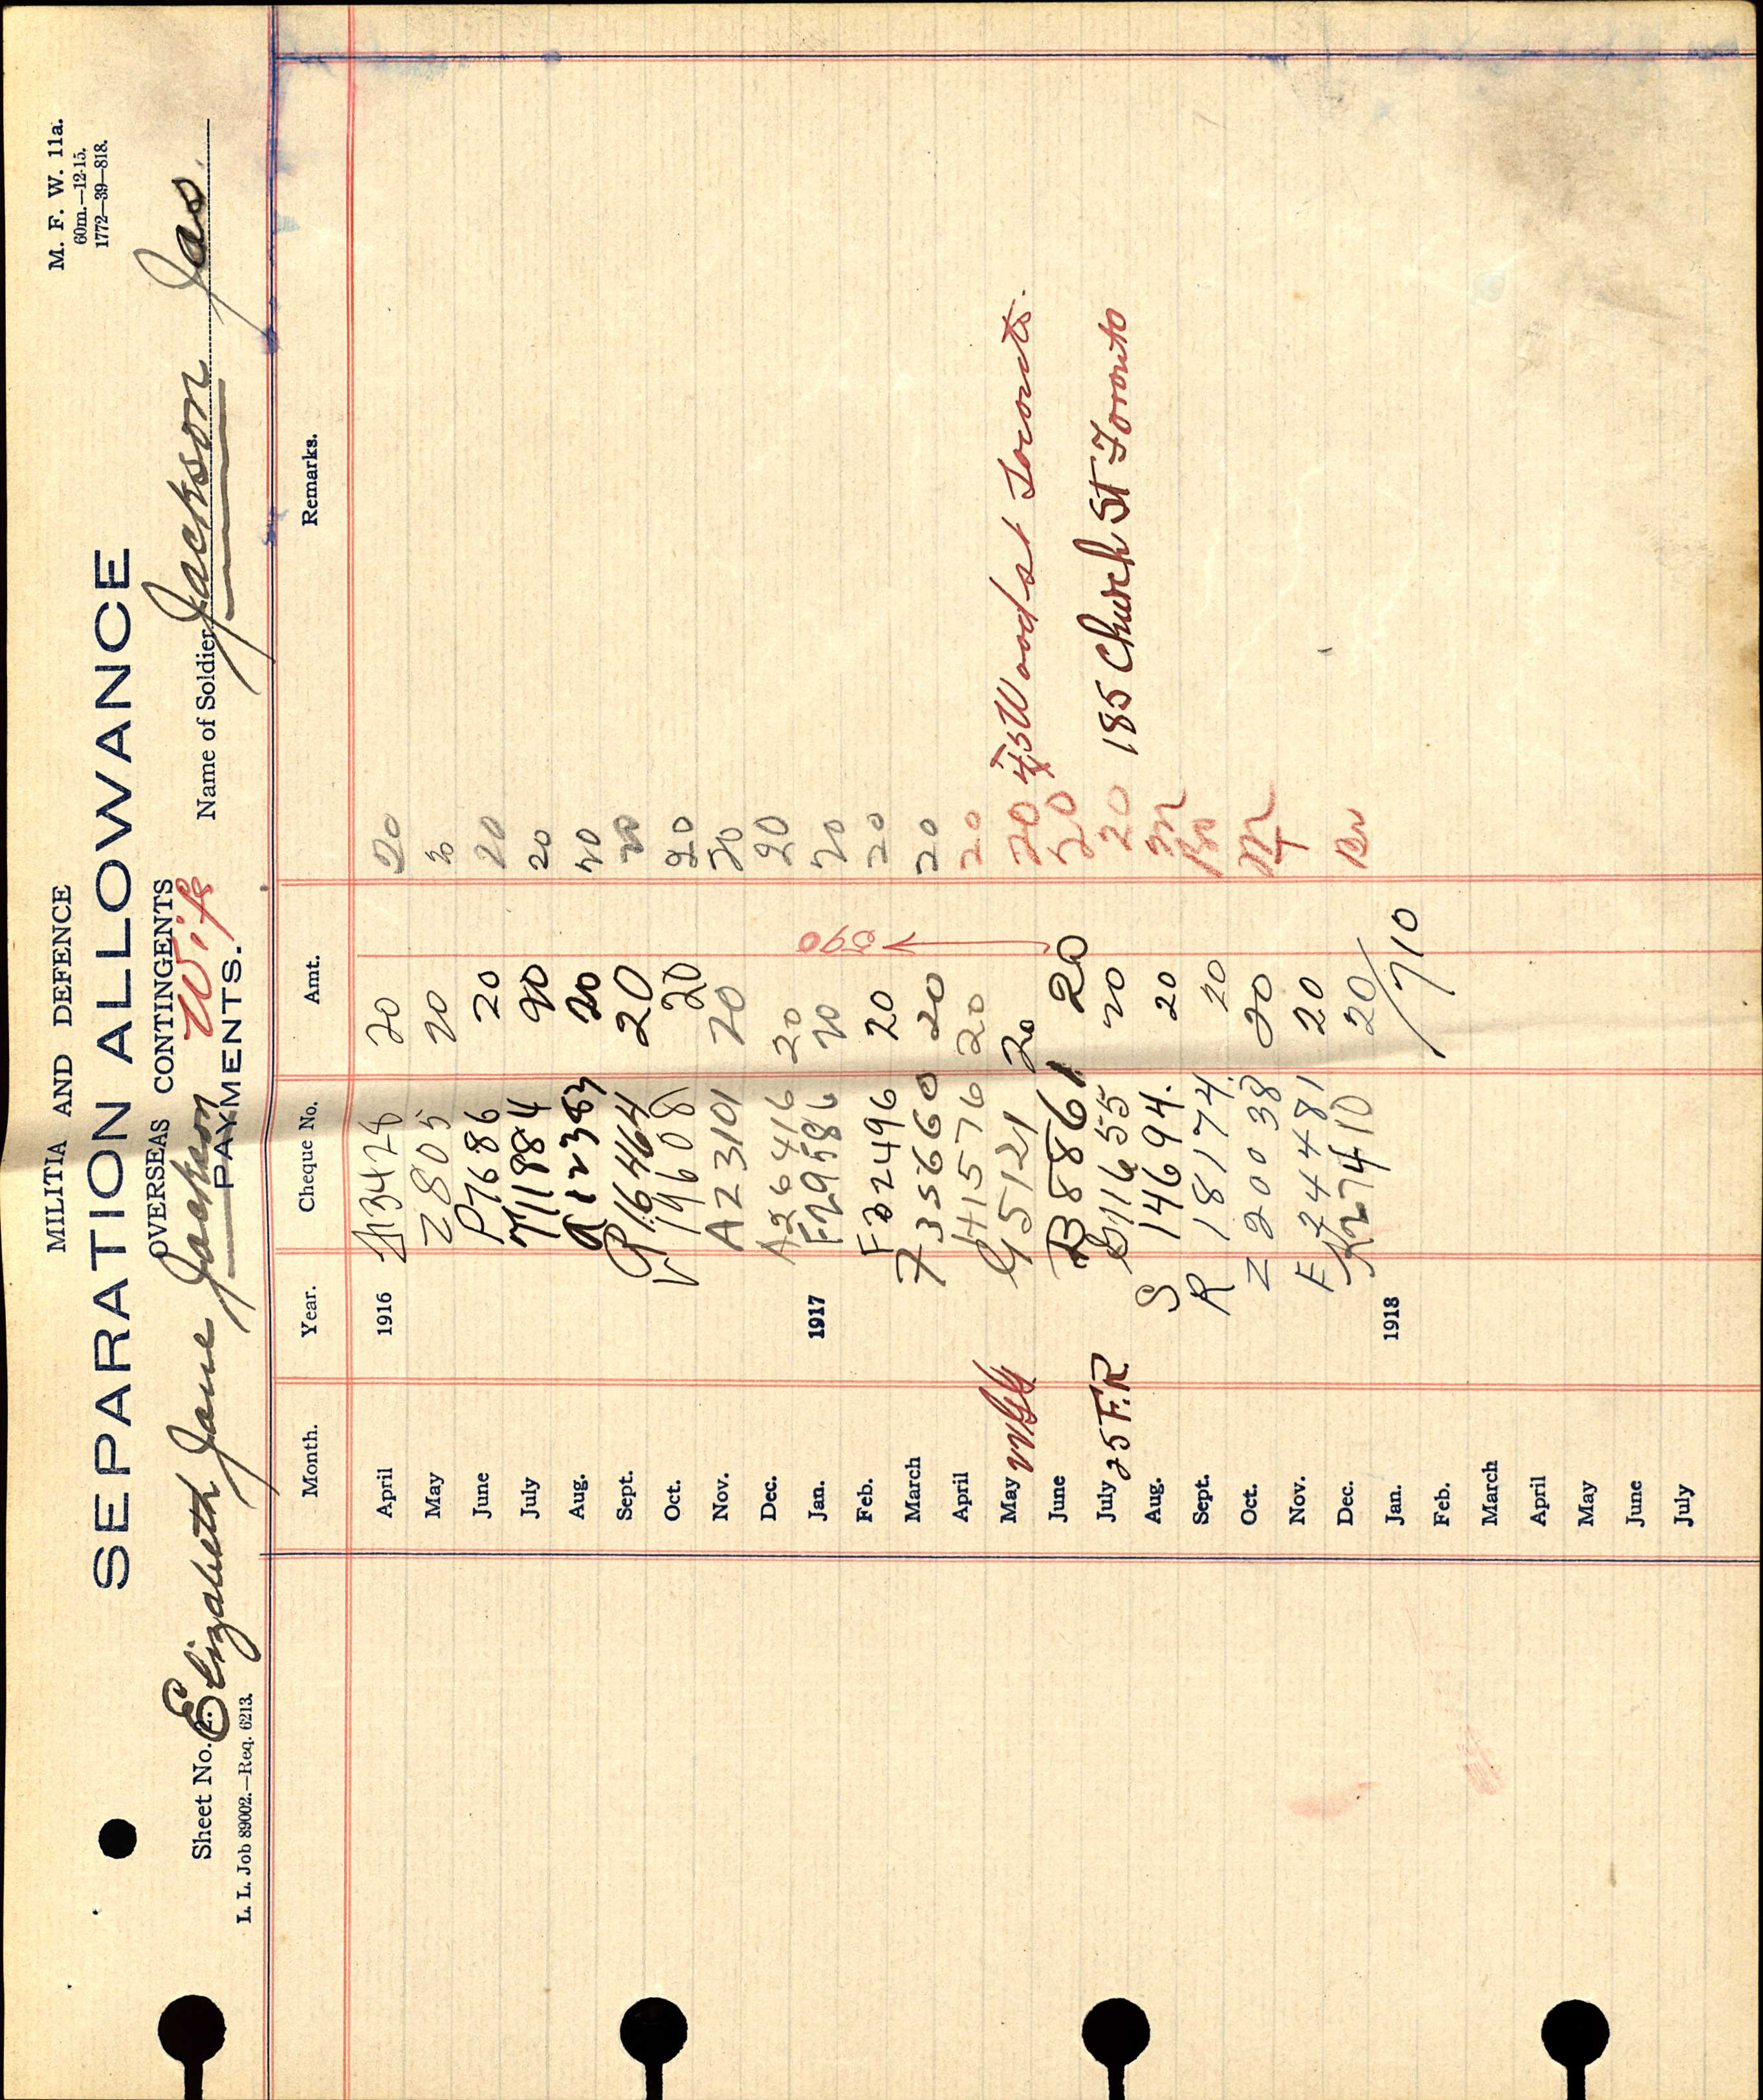 MILITIA AND DEFENCE
M. F. W. 11a.
60m.—12-15.
1772—39—818.
SEPARATION ALLOWANCE
OVERSEAS CONTINGENTS
Wife
Sheet No. 2. Elizabeth Jane Jackson
PAYMENTS.
Name of Soldier Jackson Jas.
L. L. Job 89002.—Req. 6213.
Month. Year. Cheque No. Amt. Remarks.
April 1916 13428 20 20
May Z 805 20 20
June P7686 20 20
July 11884 20 20
Aug. 12387 20 20
Sept. P 16464 20 20
Oct. V 19608 20 20
Nov. A 23101 20 20
Dec. A 26416 20 20
Jan. 1917 F29586 20 20
Feb. F32496 20 20
March 7 35660 20 20
April 41576 20 20
May G 5121 20 20 Wood st Toronto.
June B 8861 20 20
590
July 25 F.R 11655 20 20 185 Church St Toronto
Aug. S 14694. 20
Sept. R 18174. 20
Oct. Z 20038 20
Nov. F 24481 20
Dec. K27410 20
710
Jan. 1918
Feb.
March
April
May
June
July